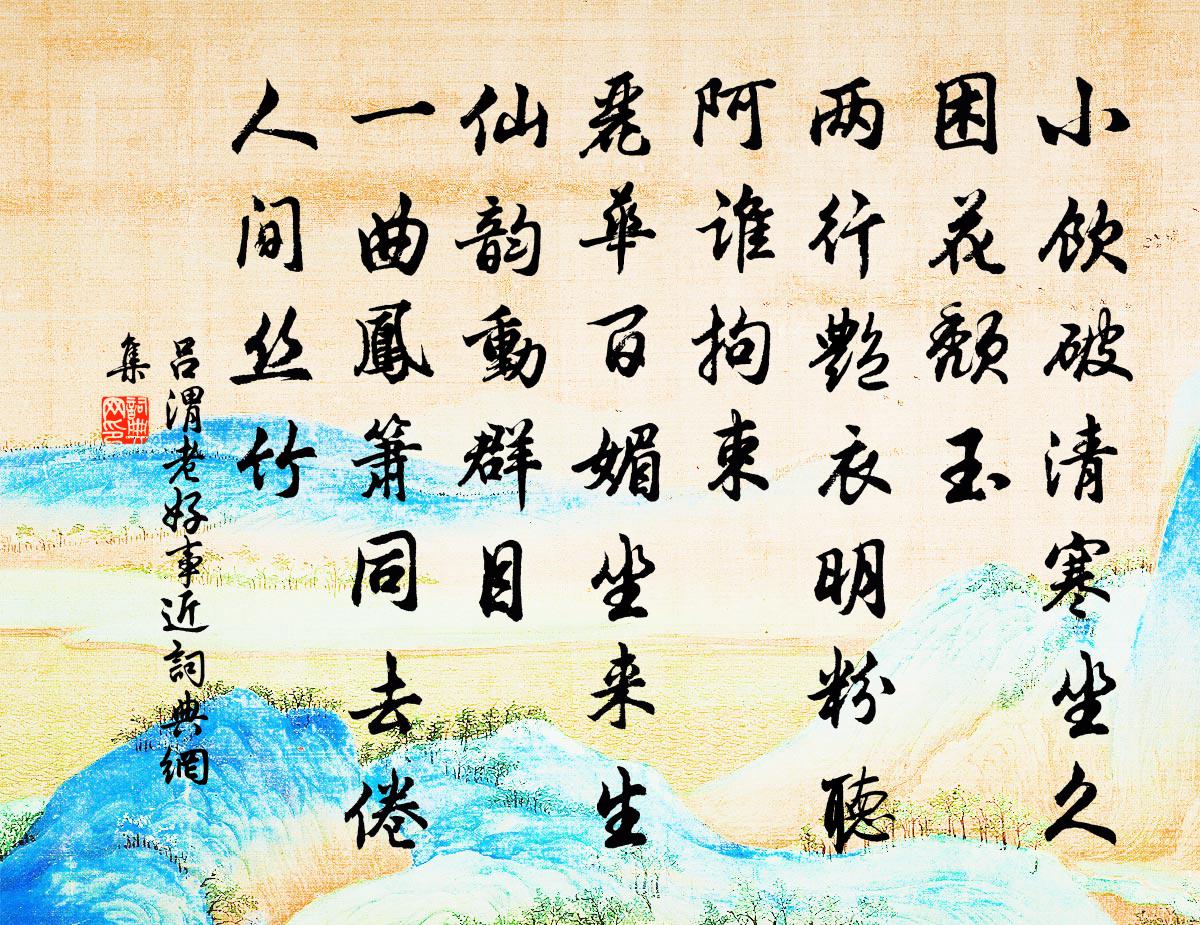 小饮破清寒坐久
困花颓玉
两行艷衣明粉聽
阿谁拘束
麗华百媚坐来生
仙韵動群目
一曲鳳箫同去倦
人间丝竹
吕渭老好事近詞典網
集
詞典網印